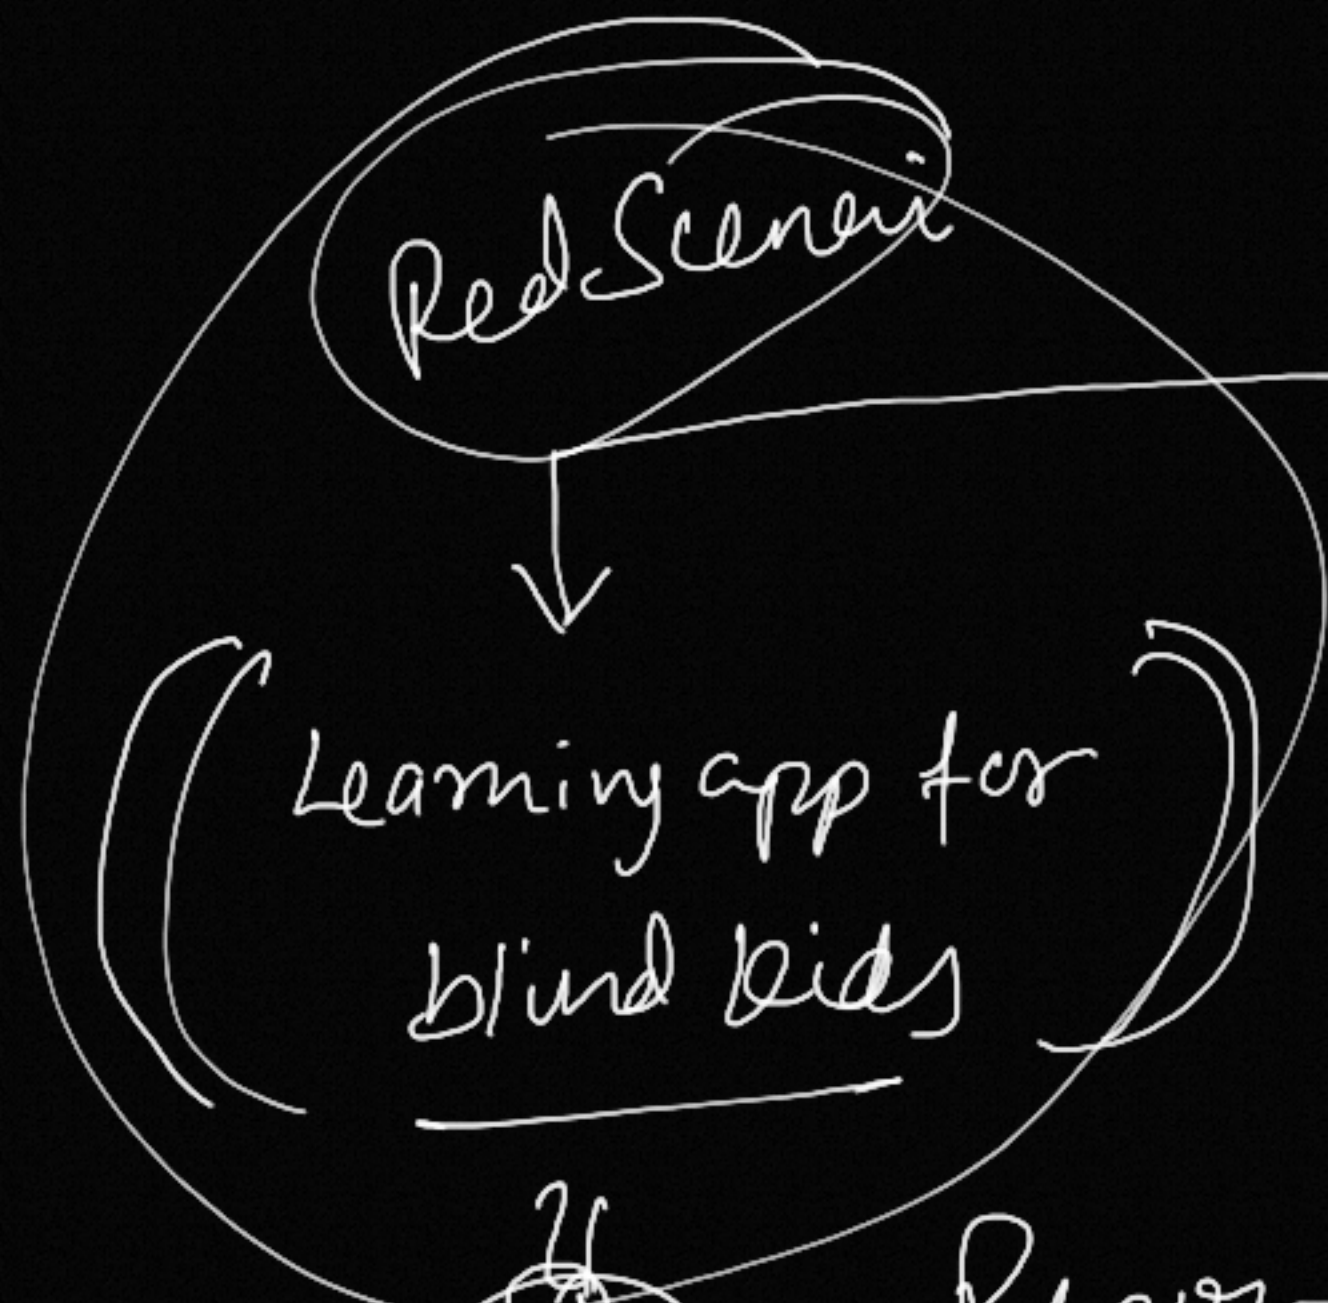 Red Scenei
Learning app for
blind kids